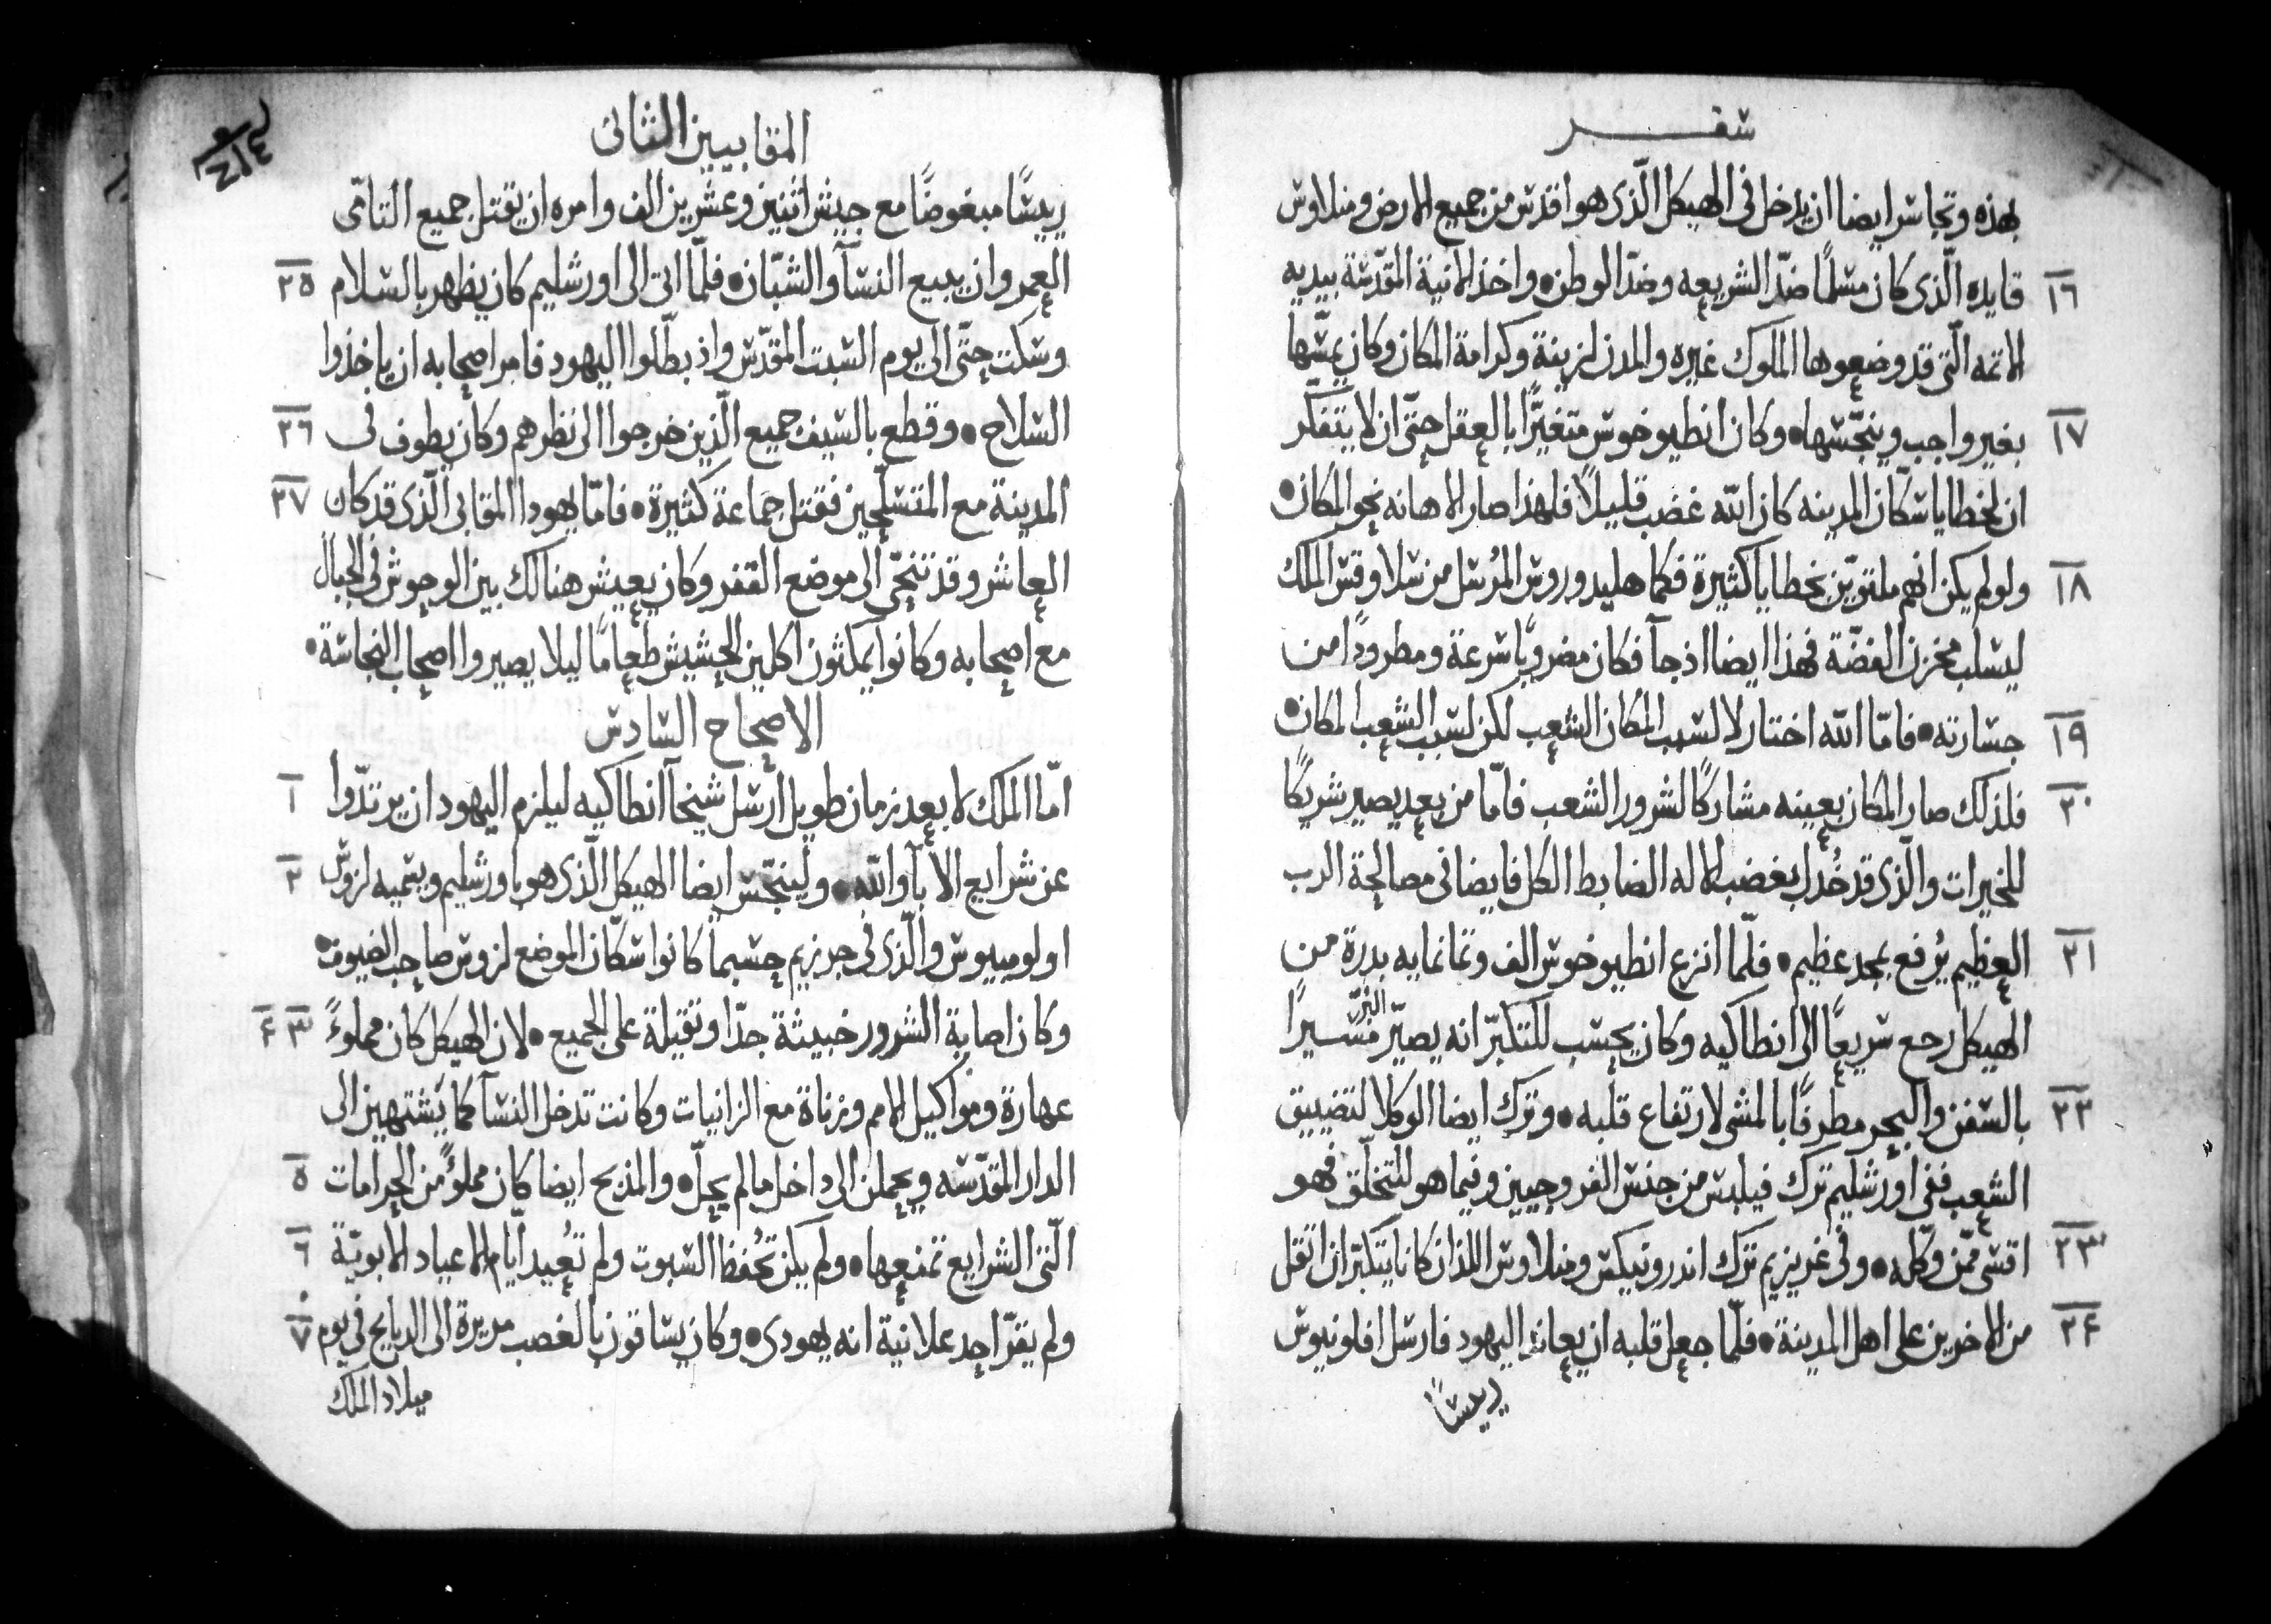 سفر
بهذه وتجاسر ايضا ان يدخل في الهيكل الّذى هو اقدس من جميع الارض ومنلاوس
١٦ قايده الّذى كان مسلمًا ضدّ الشريعه وضدّ الوطن • واخذ الانية المقدّسة بيديه
الاتمه الّتى قد وضعوها الملوك غيره والمدن لزينة وكرامة المكان وكان يمسّها
١٧ بغير واجب وينجّسها • وكان انطيوخوس متغيرًّا بالعقل حتّى ان لا يتفكّر
ان لخطايا سكّان المدينه كان الله غضب قليلًا فلهذا صار الاهانه نحو المكان •
١٨ ولو لم يكن انهم ملتويّن بخطايا كثيرة فكما هليدوروس المُرسل من سلاوقس الملك
ليسلب مخزن الفضّة فهذا ايضا اذ جآ فكان مضروبًا سرعة ومطرودًا من
١٩ جسارته • فامّا الله اختار لا لسبب المكان الشعب لكن لسبب الشعب المكان •
٢٠ فلذلك صار المكان بعينه مشاركًا لشرور الشعب فامّا من بعد يصير شريكًا
للخيرات والّذى قد خُذل بغضب الاله الضابط الكل فايضا فى مصالحة الرب
٢١ العظيم يُرفع بمجد عظيم • فلمّا انزع انطيوخوس الف وثمانمايه بدرة من
الهيكل رجع سريعًا الى انطاكيه وكان يحسب للتكبرّ انه يصيّر البرّ مسيرًا
٢٢ بالسفن والبحر مطرقًا بالمشى لارتفاع قلبه • وترك ايضا الوكلا لتضييق
الشعب ففى اورشليم ترك فيلبس من جنس الفروجيين وفيما هو للتخلّق فهو
٢٣ اقسى ممّن وكّله • وفى غريزيم ترك اندرونيكس ومنلاوس اللذان كانا يتكبّران اثقل
٢٤ من الاخرين على اهل المدينة • فلمّا جعل قلبه ان يعاند اليهود فارسل افلونيوس
رييسًا
المقابيين الثانى
رييسًا مبغوضًا مع جيش اثنين وعشرين الف وامره ان يقتل جميع التامّى
العمر وان يبيع النسآ والشبّان • فلمّا اتى الى اورشليم كان يظهر بالسلام ٢٥
وسكت حتّى الى يوم السبت المقدّس واذ بطّلوا اليهود فامر اصحابه ان ياخذوا
السلاح • وقطع بالسيف جميع الّذين خرجوا الى نظرهم وكان يطوف فى ٢٦
المدينة مع المتسلّحين فقتل جماعة كثيرة • فامّا يهودا المقابى الّذى قد كان ٢٧
العاشر وقد تنحّى الى موضع القفر وكان يعيش هنالك بين الوحوش فى الجبال
مع اصحابه وكانوا يمكثون اكلين الحشيش طعامًا ليلا يصيروا اصحاب النجاسة •
الاصحاح السادس
امّا الملك لا بعد زمان طويل ارسل شيخآ انطاكيه ليلزم اليهود ان يرتدّوا ١
عن شرايع الابآ والله • ولينجّس ايضا الهيكل الّذى هو باورشليم ويسميه لزوس ٢
اولومبيوس والّذى فى جرزيم حسبما كانوا سكّان الموضع لزوس صاحب الضيوف •
وكان اصابة الشرور خبيثة جدّا وثقيلة على الجميع • لان الهيكل كان مملوءً ٣ ٤
عهارة ومواكيل الامم وزناة مع الزانيات وكانت تدخل النسآ كما يَشتهين الى
الدار المقدّسه ويحملن الى داخل ما لم يحلّ • والمذبح ايضا كان مملؤً من الحرامات ٥
الّتى الشرايع تمنعها • ولم يكن تحُفظ السبوت ولم تعُيد ايّام الاعياد الابويّة ٦
ولم يقرّ احد علانية انه يهودى • وكان يساقون بالغصب مريرة الى الدبايح فى يوم ٧
ميلاد الملك